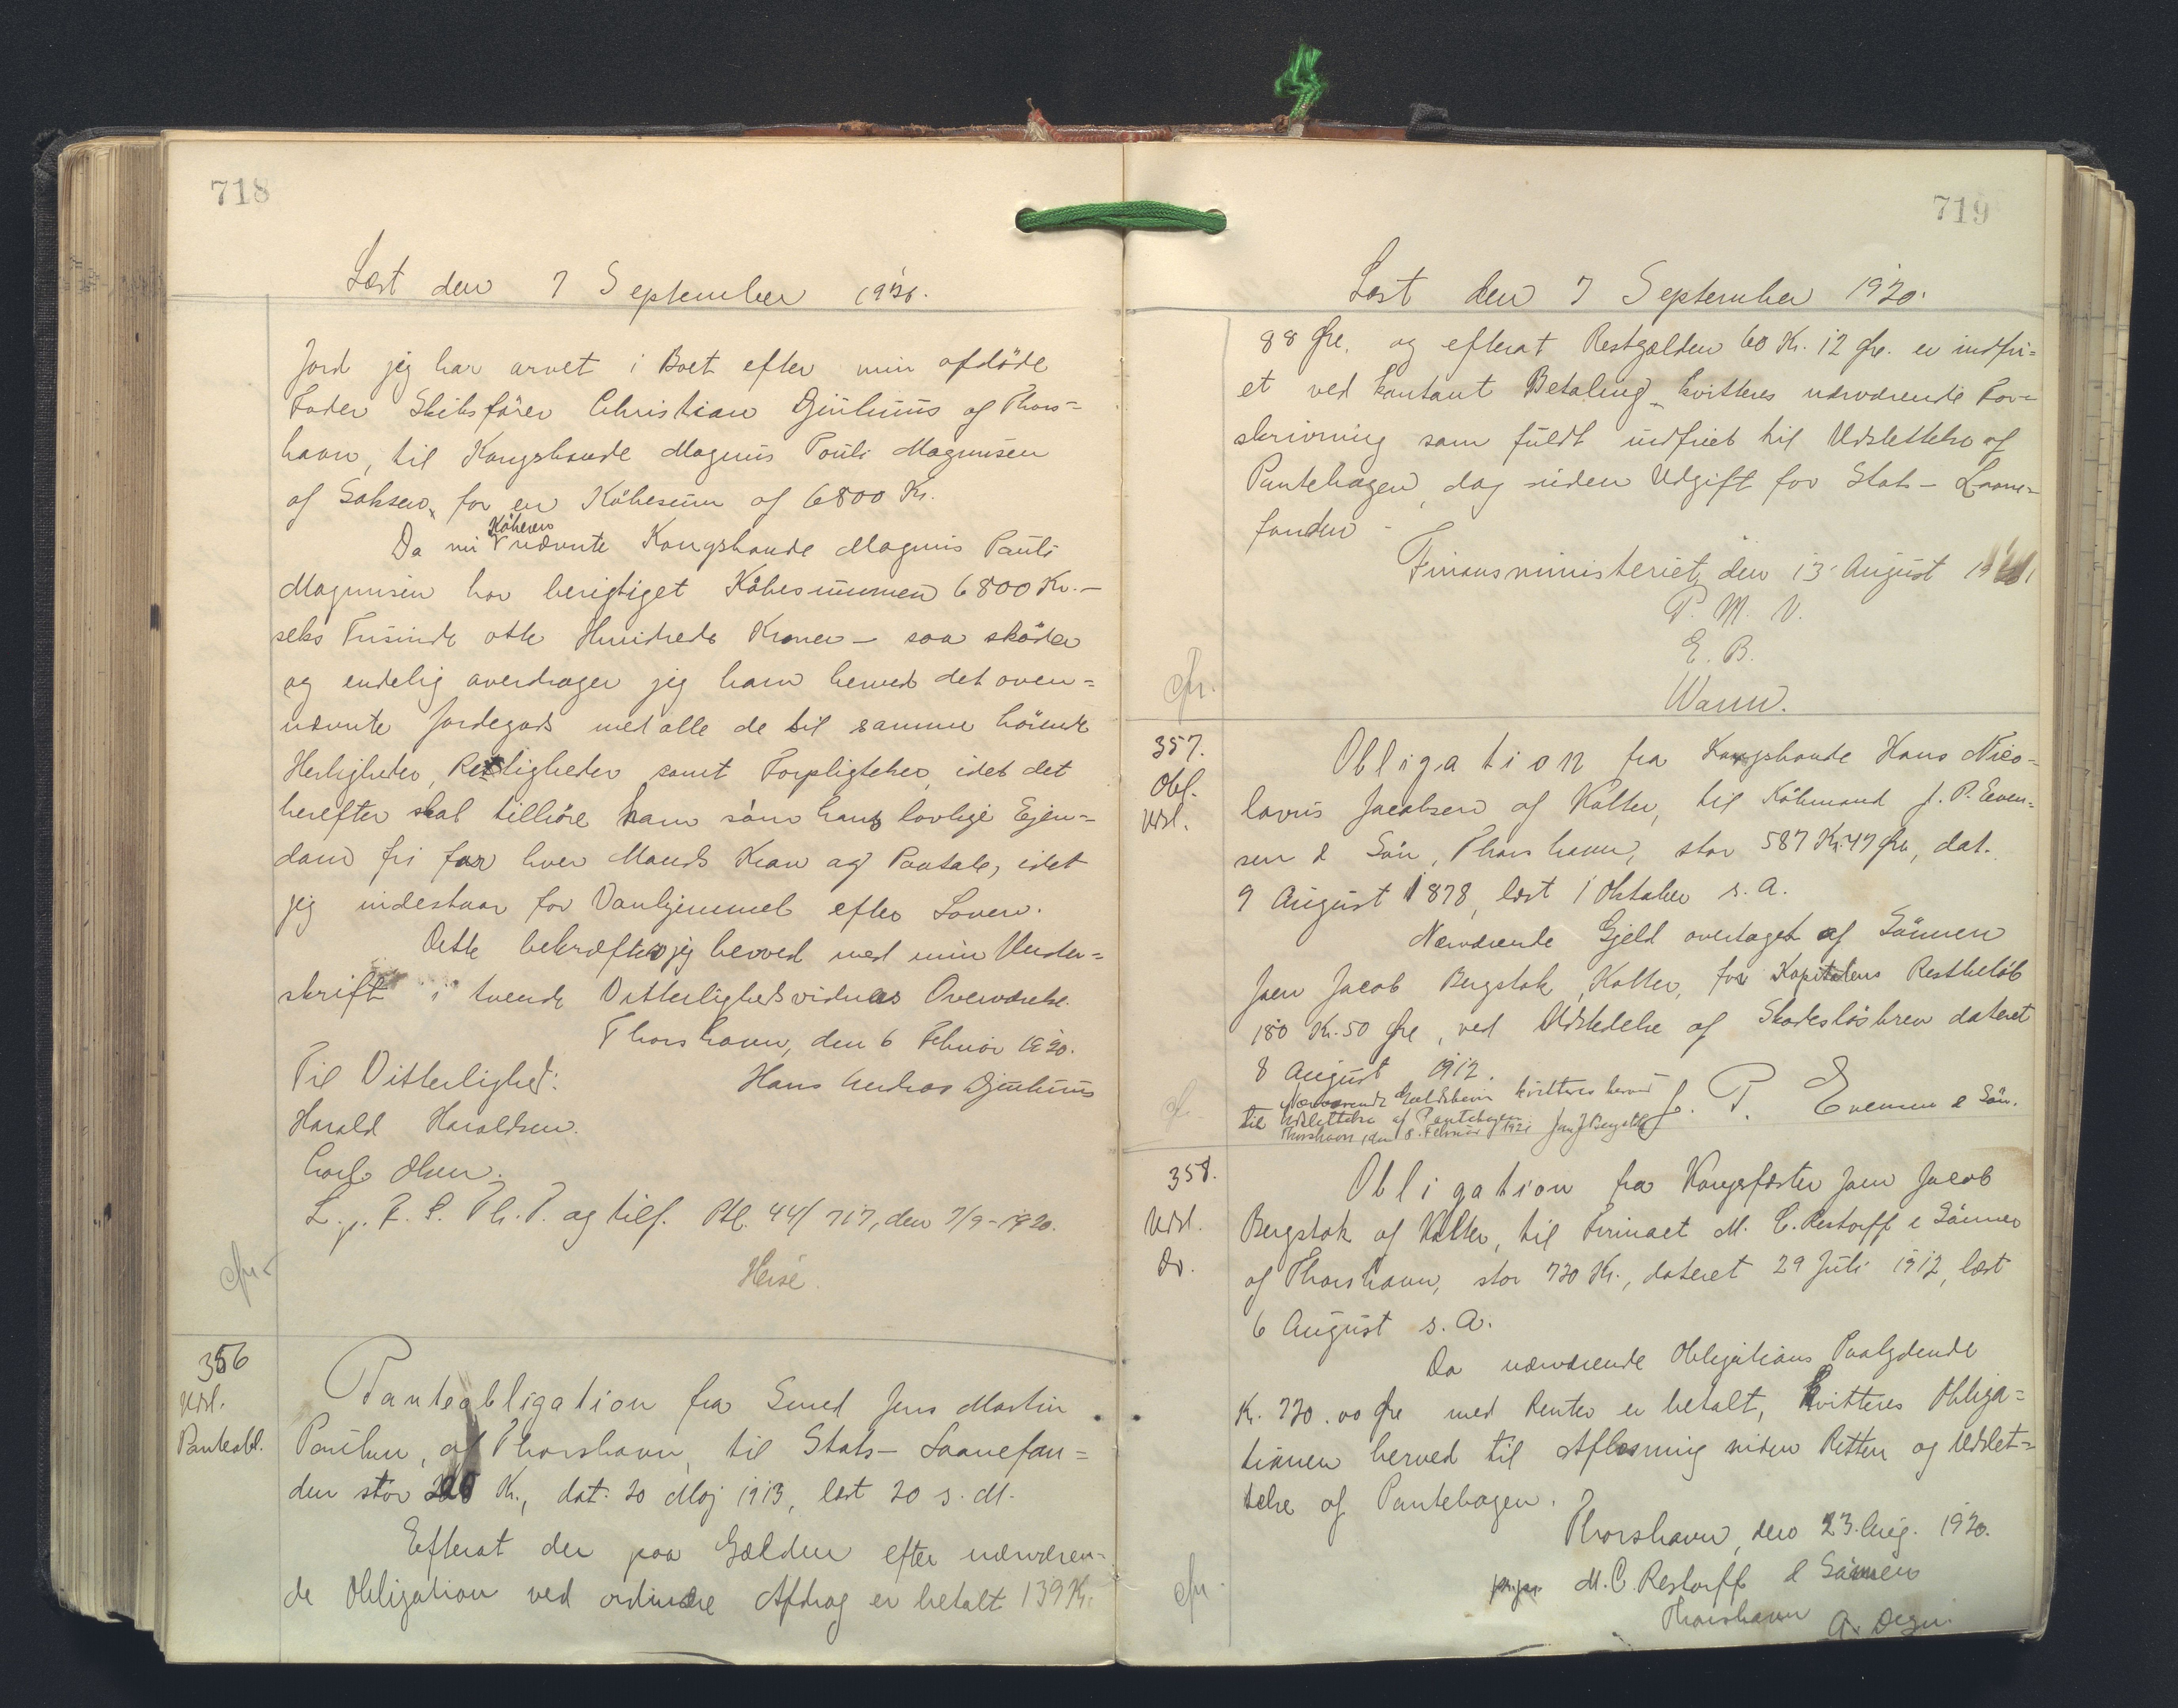 718
Læst den 7 September 1920.
Jord jeg har arvet i Boet efter min afdöde
Fader Skibsförer Christian Djurhuus af Thors=
havn, til Kongsbonde Magnus Pouli Magnusen
af Saksen, for en Köbesum af 6800 Kr.
Köberen
Da nu nævnte Kongsbonde Magnus Pauli
Magnusen har berigtiget Köbesummen 6800 Kr. -
seks Tusinde otte Hundrede Kroner - saa sköder
og endelig overdrager jeg ham herved det oven=
nævnte Jordegods med alle de til samme hörende
Herligheder, Rettigheder samt Forpligtelser, idet det
herefter skal tilhöre ham som hans lovlige Ejen=
dom fri for hver Mands Krav og Paatale, idet
jeg indestaar for Vanhjemmel efter Loven.
Dette bekræfter jeg herved med min Under=
skrift i tvende Vitterlighedsvidners Overværelse.
Thorshavn, den 6 Februar 1920.
Til Vitterlighed: Hans Andreas Djurhuus
Harald Haraldsen.
Carl Olsen.
L. j. F. S. Th. P. og tilf. Ptl. 44/717, den 7/9-1920.
cfr.
Heise.
356
Udsl.
Panteobl.
Panteobligation fra Smed Jens Martin
Poulsen, af Thorshavn, til Stats-Laanefon=
den stor 200 Kr., dat. 20 Maj 1913, læst 20 s. M.
Efterat der paa Gælden efter nærværen=
de Obligation ved ordinære Afdrag er betalt 139 Kr.
719
Læst den 7 September 1920.
88 Øre, og efterat Restgælden 60 Kr. 12 Øre. er indfri=
et ved kontant Betaling, kvitteres nærværende For=
skrivning som fuldt indfriet til Udslettelse af
Pantebogen, dog uden Udgift for Stats-Laane=
fonden -
Finansministeriet, den 13 August 19
P. M. V.
E. B.
Warm.
cfr.
357.
Obl.
Udsl.
Obligation fra Kongsbonde Hans Nico=
laus Jacobsen af Kolter, til Köbmand J. P. Even=
sen & Sön, Thorshavn, stor 587 Kr. 47 Øre, dat.
9 August 1878, læst 1 Oktober s. A.
Nærværende Gjeld overtaget af Sönnen
Joen Jacob Bergstok, Kolter, for Kapitalens Restbelöb
180 Kr. 50 Øre, ved Udstedelse af Skadeslösbrev dateret
8 August 1912.
J. P. Evensen & Sön.
Nærværende Gældsbevis kvitteres herved
til Udslettelse af Pantebogen
Thorshavn, den 8. Februar 1921 Joen J Bergstok
358.
Udsl.
Do.
Obligation fra Kongsfæster Joen Jacob
Bergstok af Kolter, til Firmaet M. C. Restorff & Sönner
af Thorshavn, stor 720 Kr., dateret 29 Juli 1912, læst
6 August s. A.
Da nærværende Obligations Paalydende
Kr. 720.00 Øre med Renter er betalt, kvitteres Obliga=
tionen herved til Aflæsning inden Retten og Udslet=
telse af Pantebogen.
Thorshavn, den 23. Aug. 1920.
pr.pr. M. C. Restorff & Sönner
Thorshavn
cfr.